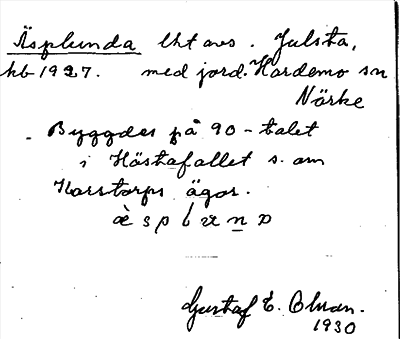 Äsplunda lht avs. Julsta,
hb 1927. med jord. Hardemo sn
Närke
- Byggdes på 90-talet
i Hästafallet s. om
Korstorps ägor.
æ̀ s p l ɐ n ɒ
Gustaf E.
1930